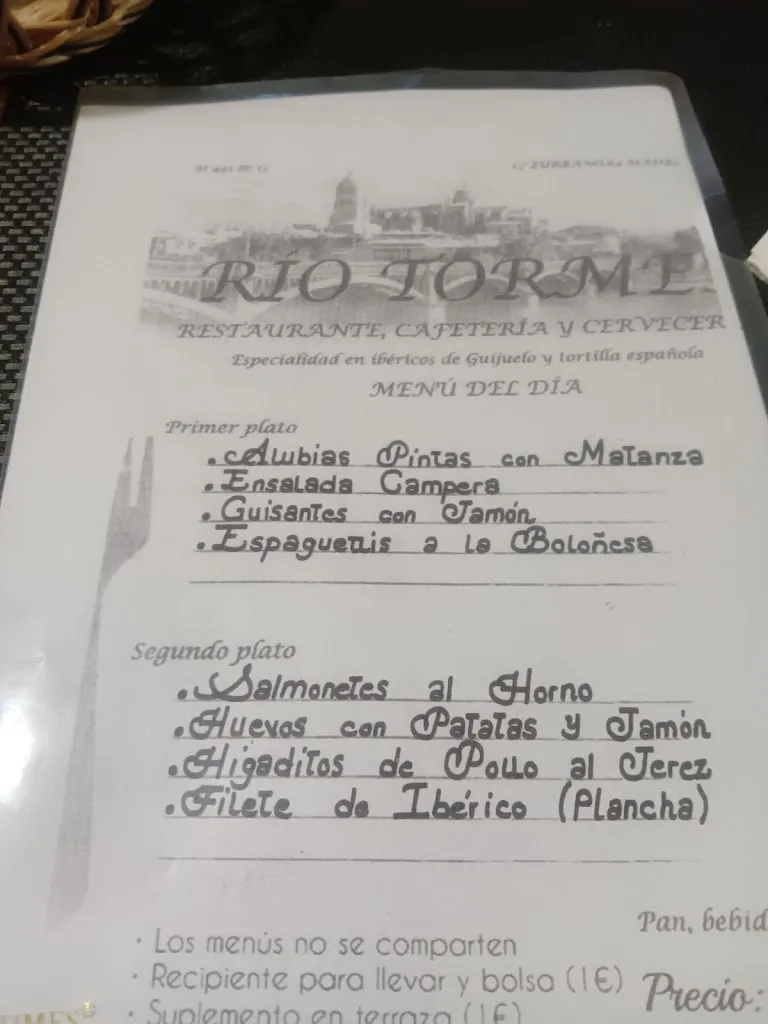 C/
RÍO TORME
RESTAURANTE, CAFETERÍA Y CERVECER
Especialidad en ibéricos de Guijuelo y tortilla española
MENÚ DEL DÍA
Primer plato
. Alubias Pintas con Matanza
. Ensalada Campera
. Guisantes con Jamón
. Espaguetis a la Boloñesa
Segundo plato
. Salmonetes al Horno
. Huevos con Patatas y Jamón
. Higaditos de Pollo al Jerez
. Filete de Ibérico (Plancha)
Pan, bebid
· Los menús no se comparten
· Recipiente para llevar y bolsa (1€)
Precio:
· Suplemento en terraza (1€)